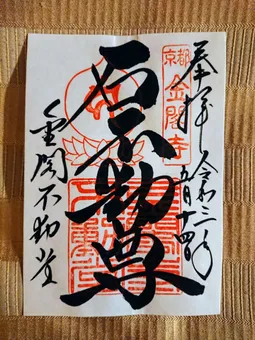 奉拝
令和三年
五月十四日
京都
金閣寺
石不動尊
金閣不動堂